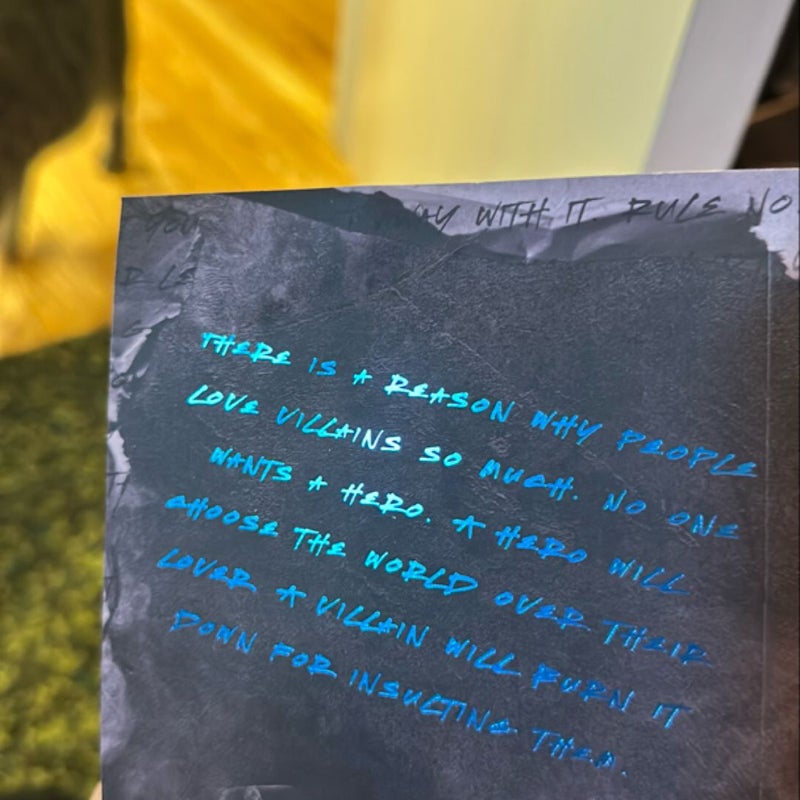 WITH IT. RULE NO
THERE IS A REASON WHY PEOPLE
LOVE VILLAINS SO MUCH. NO ONE
WANTS A HERO. A HERO WILL
CHOOSE THE WORLD OVER THEIR
LOVER A VILLAIN WILL BURN IT
DOWN FOR INSULTING THEM.